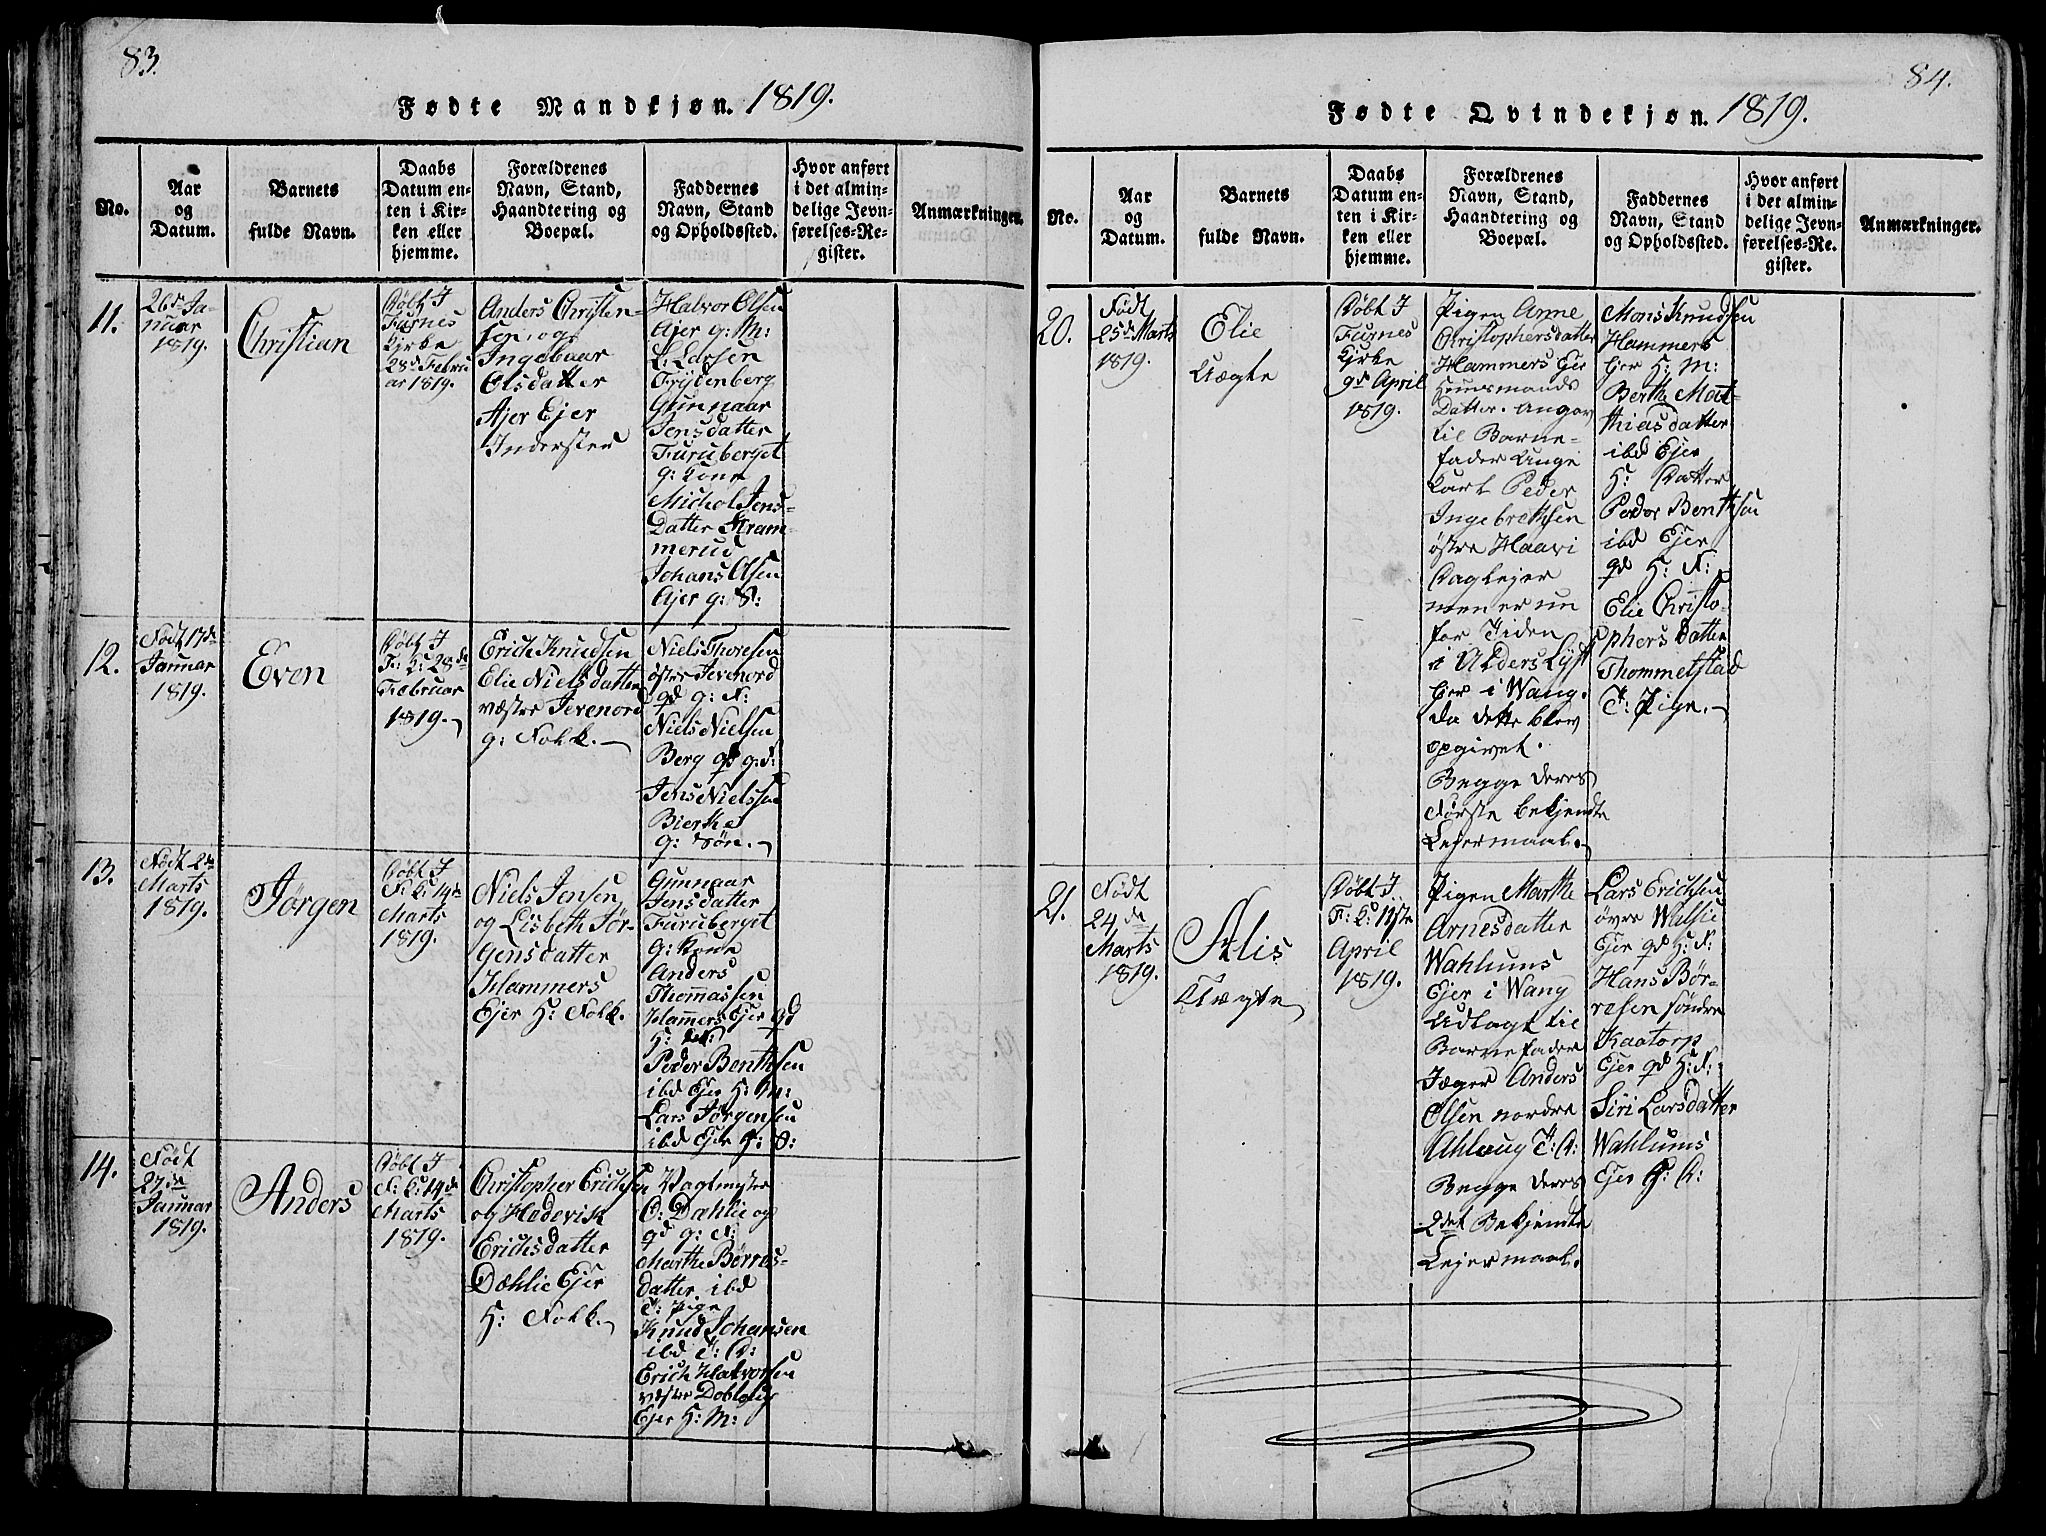 83.
Fødte Mandkjøn. 1819.
No.
Aar
og
Datum.
Barnets
fulde Navn.
Daabs
Datum en-
ten i Kir-
ken eller
hjemme.
Forældrenes
Navn, Stand,
Haandtering og
Boepæl.
Faddernes
Navn, Stand
og Opholdssted.
Hvor anført
i det almin-
delige Jevn-
førelses-Re-
gister.
Anmærkninger.
11.
26de Ja-
nuar
1819.
Christian
Døbt I
Furnes
Kirke
28de Febru
ar 1819.
Anders Christen-
sen, og
Ingebaar
Olsdatter
Ajer Ejer
Inderster
Halvor Olsen
Ajer g: M:
L: Larsen
Frydenberg
Gunnaar
Jensdatter
Furuberget
g: Kone
Michol Jens-
Datter Kram-
merud
Johans Olsen
Ajer g: S:
12.
Født 17de
Januar
1819.
Even
Døbt I
F: K: 28de
Februar
1819.
Erich Knudsen
Elie Nielsdatter
væstre Jevenord
g: Folk.
Niels Thoresen
østre Jevenord
qd g: N:
Niels Nielsen
Berg qd g: S:
Jens Nielsen
Bierke
g: Søn.
13.
Født 2de
Marts
1819.
Jørgen
Døbt I
F: K: 14de
Marts
1819.
Niels Jensen
og Lisbeth Jør-
gensdatter
Hammers
Ejer H: Folk.
Gunnaar
Jensdatter
Furuberget
g: Kone
Anders
Thomassen
Hammers Ejer qd
H:
Peder Benthsen
ibd Ejer H: M:
Lars Jørgensen
ibd Ejer H: S:
14.
Født
27de
Januar
1819.
Anders
Døbt I
F: K: 14de
Marts
1819.
Christopher Erichsen
og Hedevik
Erichsdatter
Dæhlie Ejer
H: Folk.
Vagtmester
O: Dæhlie og
qd g: N:
Marthe Børres-
datter ibd
T: Pige
Knud Johansen
ibd T: D:
Erich Halvorsen
væstre Doblaug
Ejer H: M:
84.
Fødte Qvindekjøn. 1819.
No.
Aar
og
Datum.
Barnets
fulde Navn.
Daabs
Datum en-
ten i Kir-
ken eller
hjemme.
Forældrenes
Navn, Stand,
Haandtering og
Boepæl.
Faddernes
Navn, Stand
og Opholdssted.
Hvor anført
i det almin-
delige Jevn-
førelses-Re-
gister.
Anmærkninger.
20.
Født
25de Marts
1819.
Elie
Uægte
Døbt I
Furnes
Kirke
9de April
1819.
Pigen Anne
Christophersdatter
Hammers Ejer
Huusmands
Datter. Angav
til Barne-
fader Unge
Karl Peder
Ingebrethsen
østre Haavi
Daglejer
men er nu
for Tiden
i Alderslyst
Ejer i Wang.
da dette blev
opgivet.
Begge deres
Første bekjendte
Lejermaal.
Mons Knudsen
Hammers
Ejer H: M:
Berthe Mat-
thiesdatter
ibd Ejer
H: Datter
Peder Benthsen
ibd Ejer
qd H: N:
Elie Christo-
phersdatter
Thommelstad
T: Pige.
21.
Født
24de
Marts
1819.
Alis
Uægte
Døbt I
F: K: 19de
April
1819.
Pigen Marthe
Arnesdatter
Wahlums
Ejer i Wang
Udlagt til
Barnefader
Jæger Anders
Olsen nordre
Ahlaug T: D:
Begge deres
2det Bekjendte
Lejermaal.
Lars Erichsen
øvre Walsie
Ejer qd H: N:
Hans Bør-
resen søndre
Kaatorp
Ejer qd H: N:
Siri Larsdatter
Wahlums
Ejer H: D: